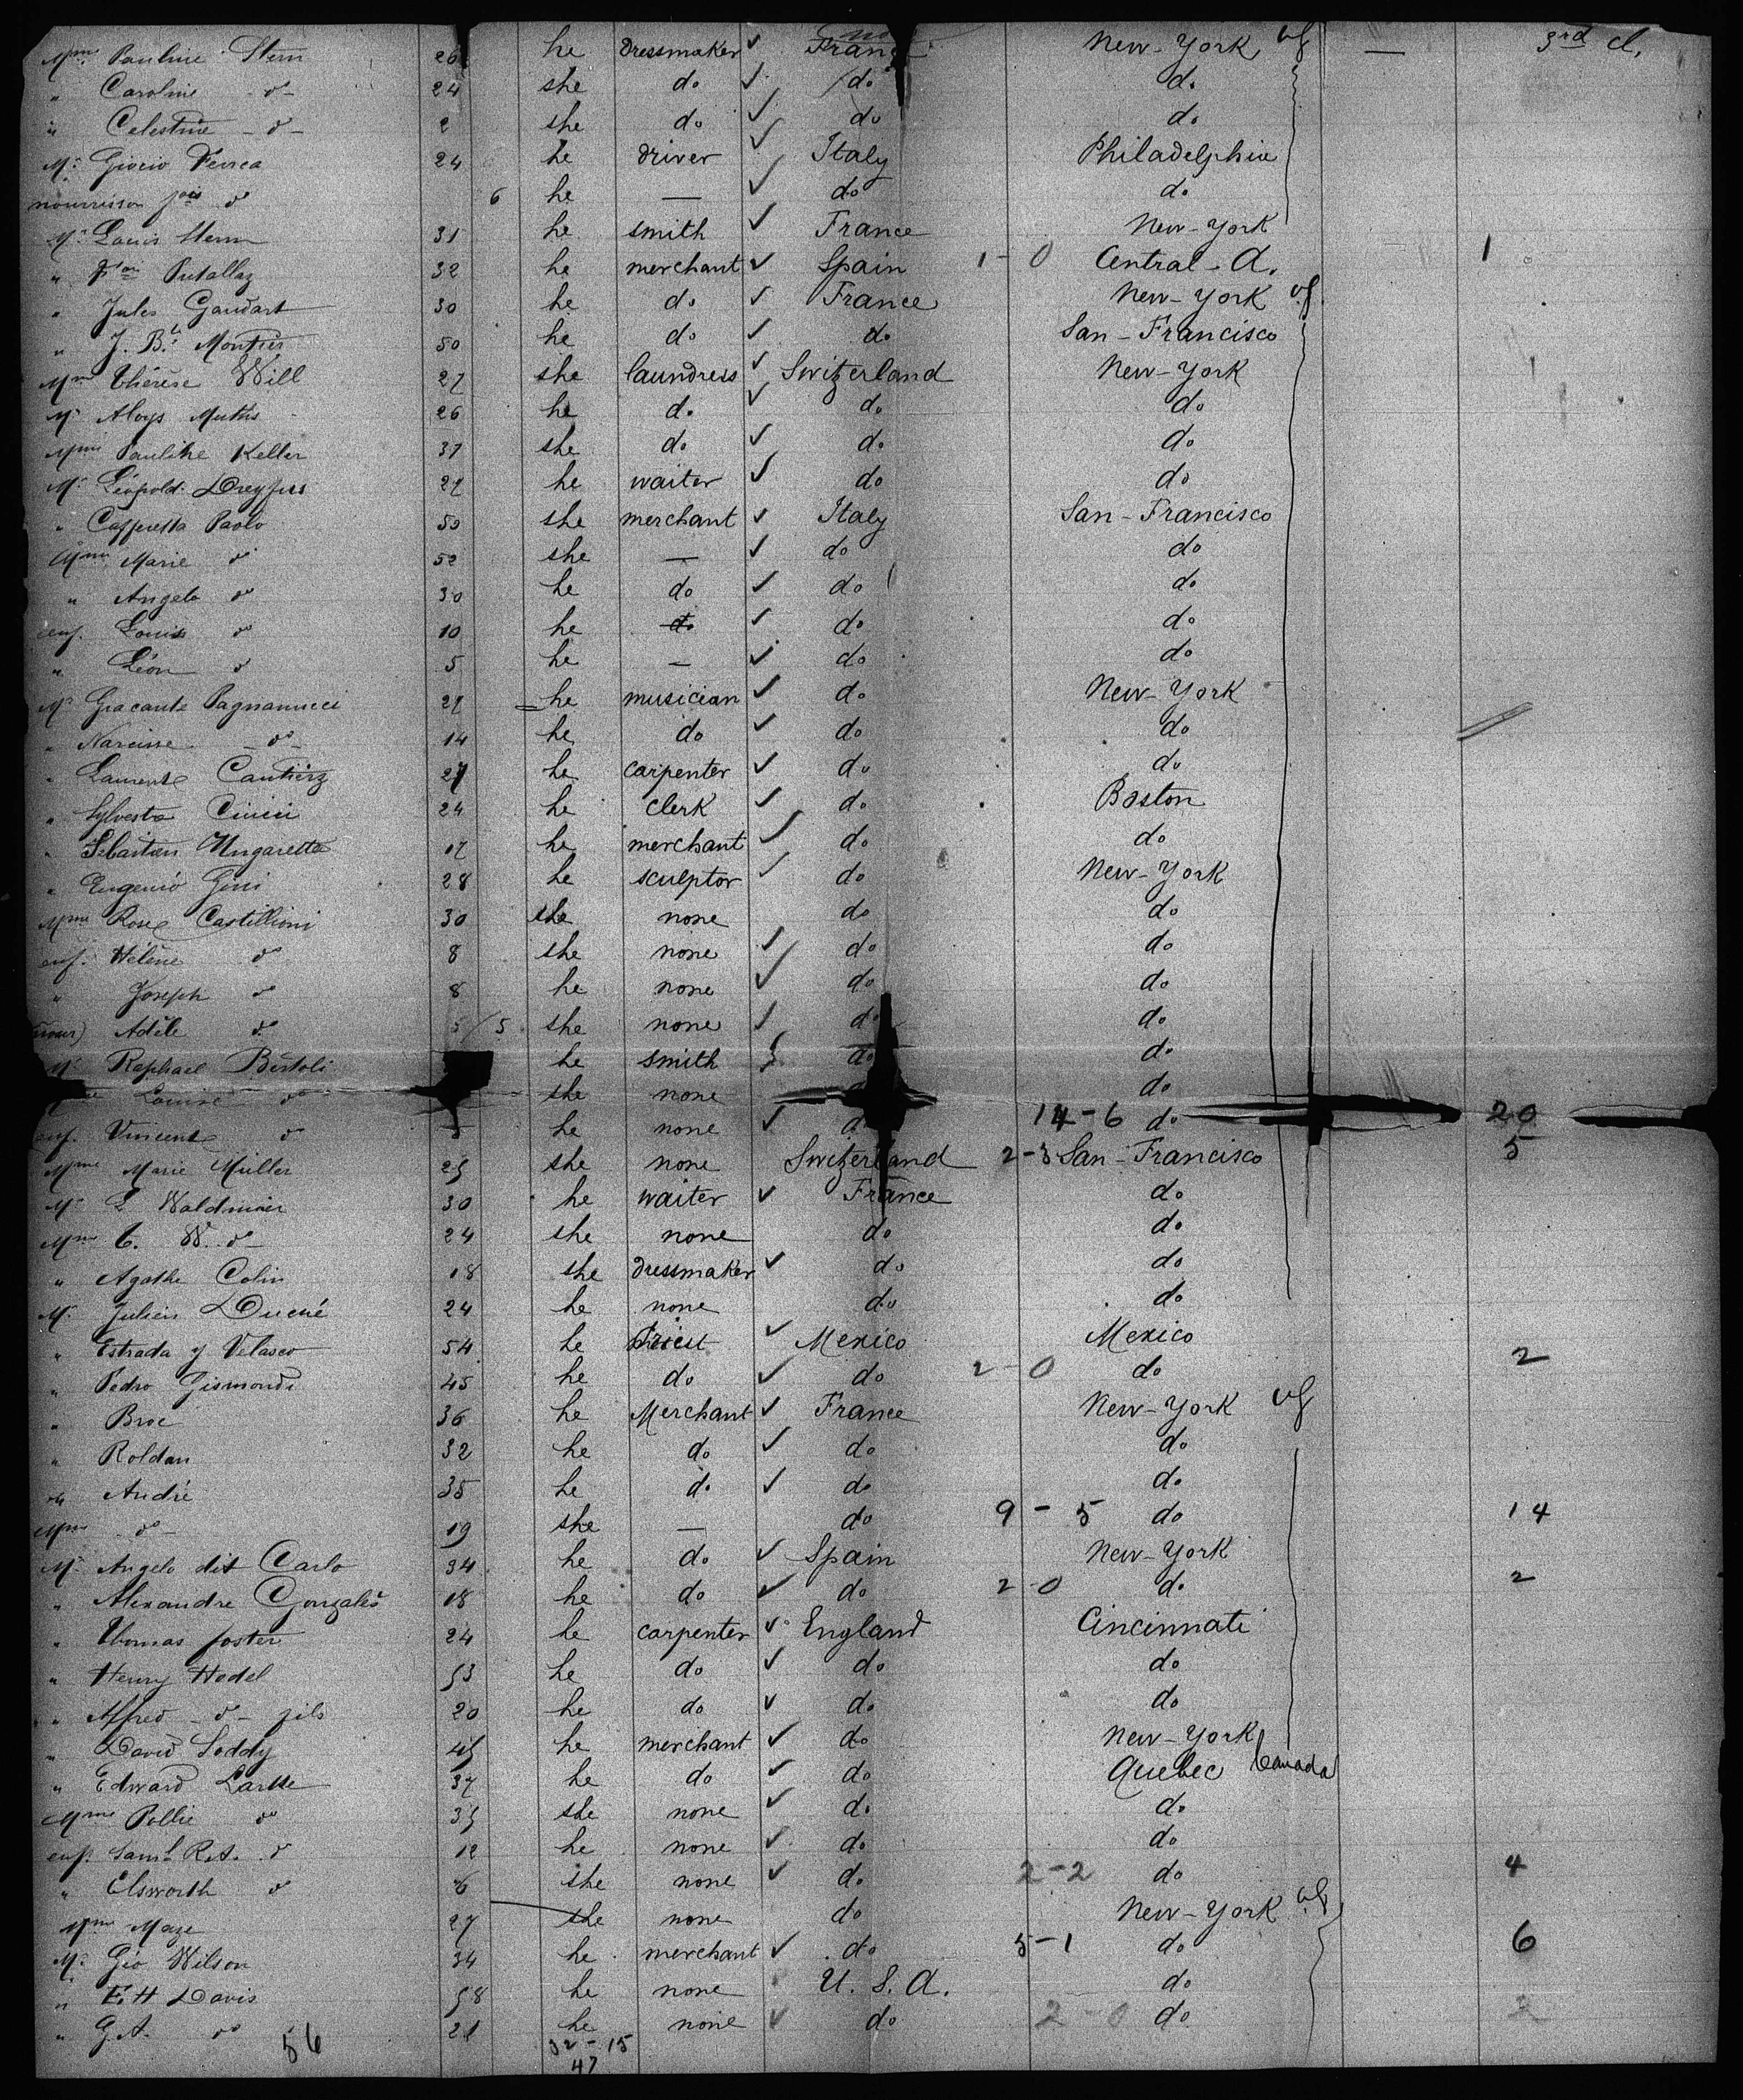 Mme Pauline Stern 26 he dressmaker ✓ France New-York — 3rd cl.
" Caroline -do- 24 she do ✓ do do
" Celestine -do- 2 she do ✓ do do
Mr 24 he driver ✓ Italy Philadelphia
nourrisson do 6 he — ✓ do do
Mr Louis Stern 31 he smith ✓ France New-York
" Putallaz 32 he merchant ✓ Spain 1-0 Central-A. 1
" Jules Gaudart 30 he do ✓ France New-York
" J. Bt Montier 50 he do ✓ do San-Francisco
Mme Thérèse Will 27 she laundress ✓ Switzerland New-York
Mr Aloys 26 he do ✓ do do
Mme Pauline Keller 31 she do ✓ do do
Mr Léopold Dreyfus 27 he waiter ✓ do do
" Paolo 50 she merchant ✓ Italy San-Francisco
Mme Marie do 52 she — ✓ do do
" Angelo do 30 he do ✓ do do
enf. Louis do 10 he do ✓ do do
" Léon do 5 he - ✓ do do
Mr he musician ✓ do New-York
" Narcisse -do- 14 he do ✓ do do
" 27 he carpenter ✓ do do
" 24 he clerk ✓ do Boston
" he merchant ✓ do do
" Eugenio Gini 28 he sculptor ✓ do New-York
Mme Rose Castillioni 30 she none do do
enf. Hélène do 8 she none ✓ do do
" Joseph do 8 he none ✓ do do
Adèle do 5 she none ✓ do do
Mr Raphael Bertoli he smith do do
Louise do she none do
enf. Vincent do he none ✓ 14-6 do 20
Mme Marie Müller 25 she none Switzerland 2-3 San-Francisco 5
Mr 30 he waiter ✓ France do
Mme C. W. do 24 she none do do
" Agathe Colin 18 she dressmaker ✓ do do
Mr Julien 24 he none do do
" Estrada y Velasco 54 he Priest ✓ Mexico Mexico
" Pedro Gismondi 45 he do ✓ do 2-0 do 2
" Broc 36 he Merchant ✓ France New-York
" Roldan 32 he do ✓ do do
" André 35 he do ✓ do do
Mme -do- 19 she — do 9-5 do 14
Mr Angelo dit Carlo 34 he do ✓ Spain New-York
" Alexandre Gonzalès 18 he do ✓ do 2-0 do 2
" Thomas foster 24 he carpenter ✓ England Cincinnati
" Henry Hodel 53 he do ✓ do do
" Alfred -do- fils 20 he do ✓ do do
" David Soddy 45 he merchant ✓ do New-York
" Edward 37 he do ✓ do Quebec Canada
Mme Pollie do 35 she none ✓ do do
enf. Saml R.A. do 12 he none ✓ do do
" Elsworth do 6 she none ✓ do 2-2 do 4
Mme Maze 27 she none do New-York
Mr Géo Wilson 34 he merchant ✓ do 5-1 do 6
" E.H Davis 58 he none U.S.A. do
" G.A. do 21 he none ✓ do 2-0 do 2
56 32-15
47